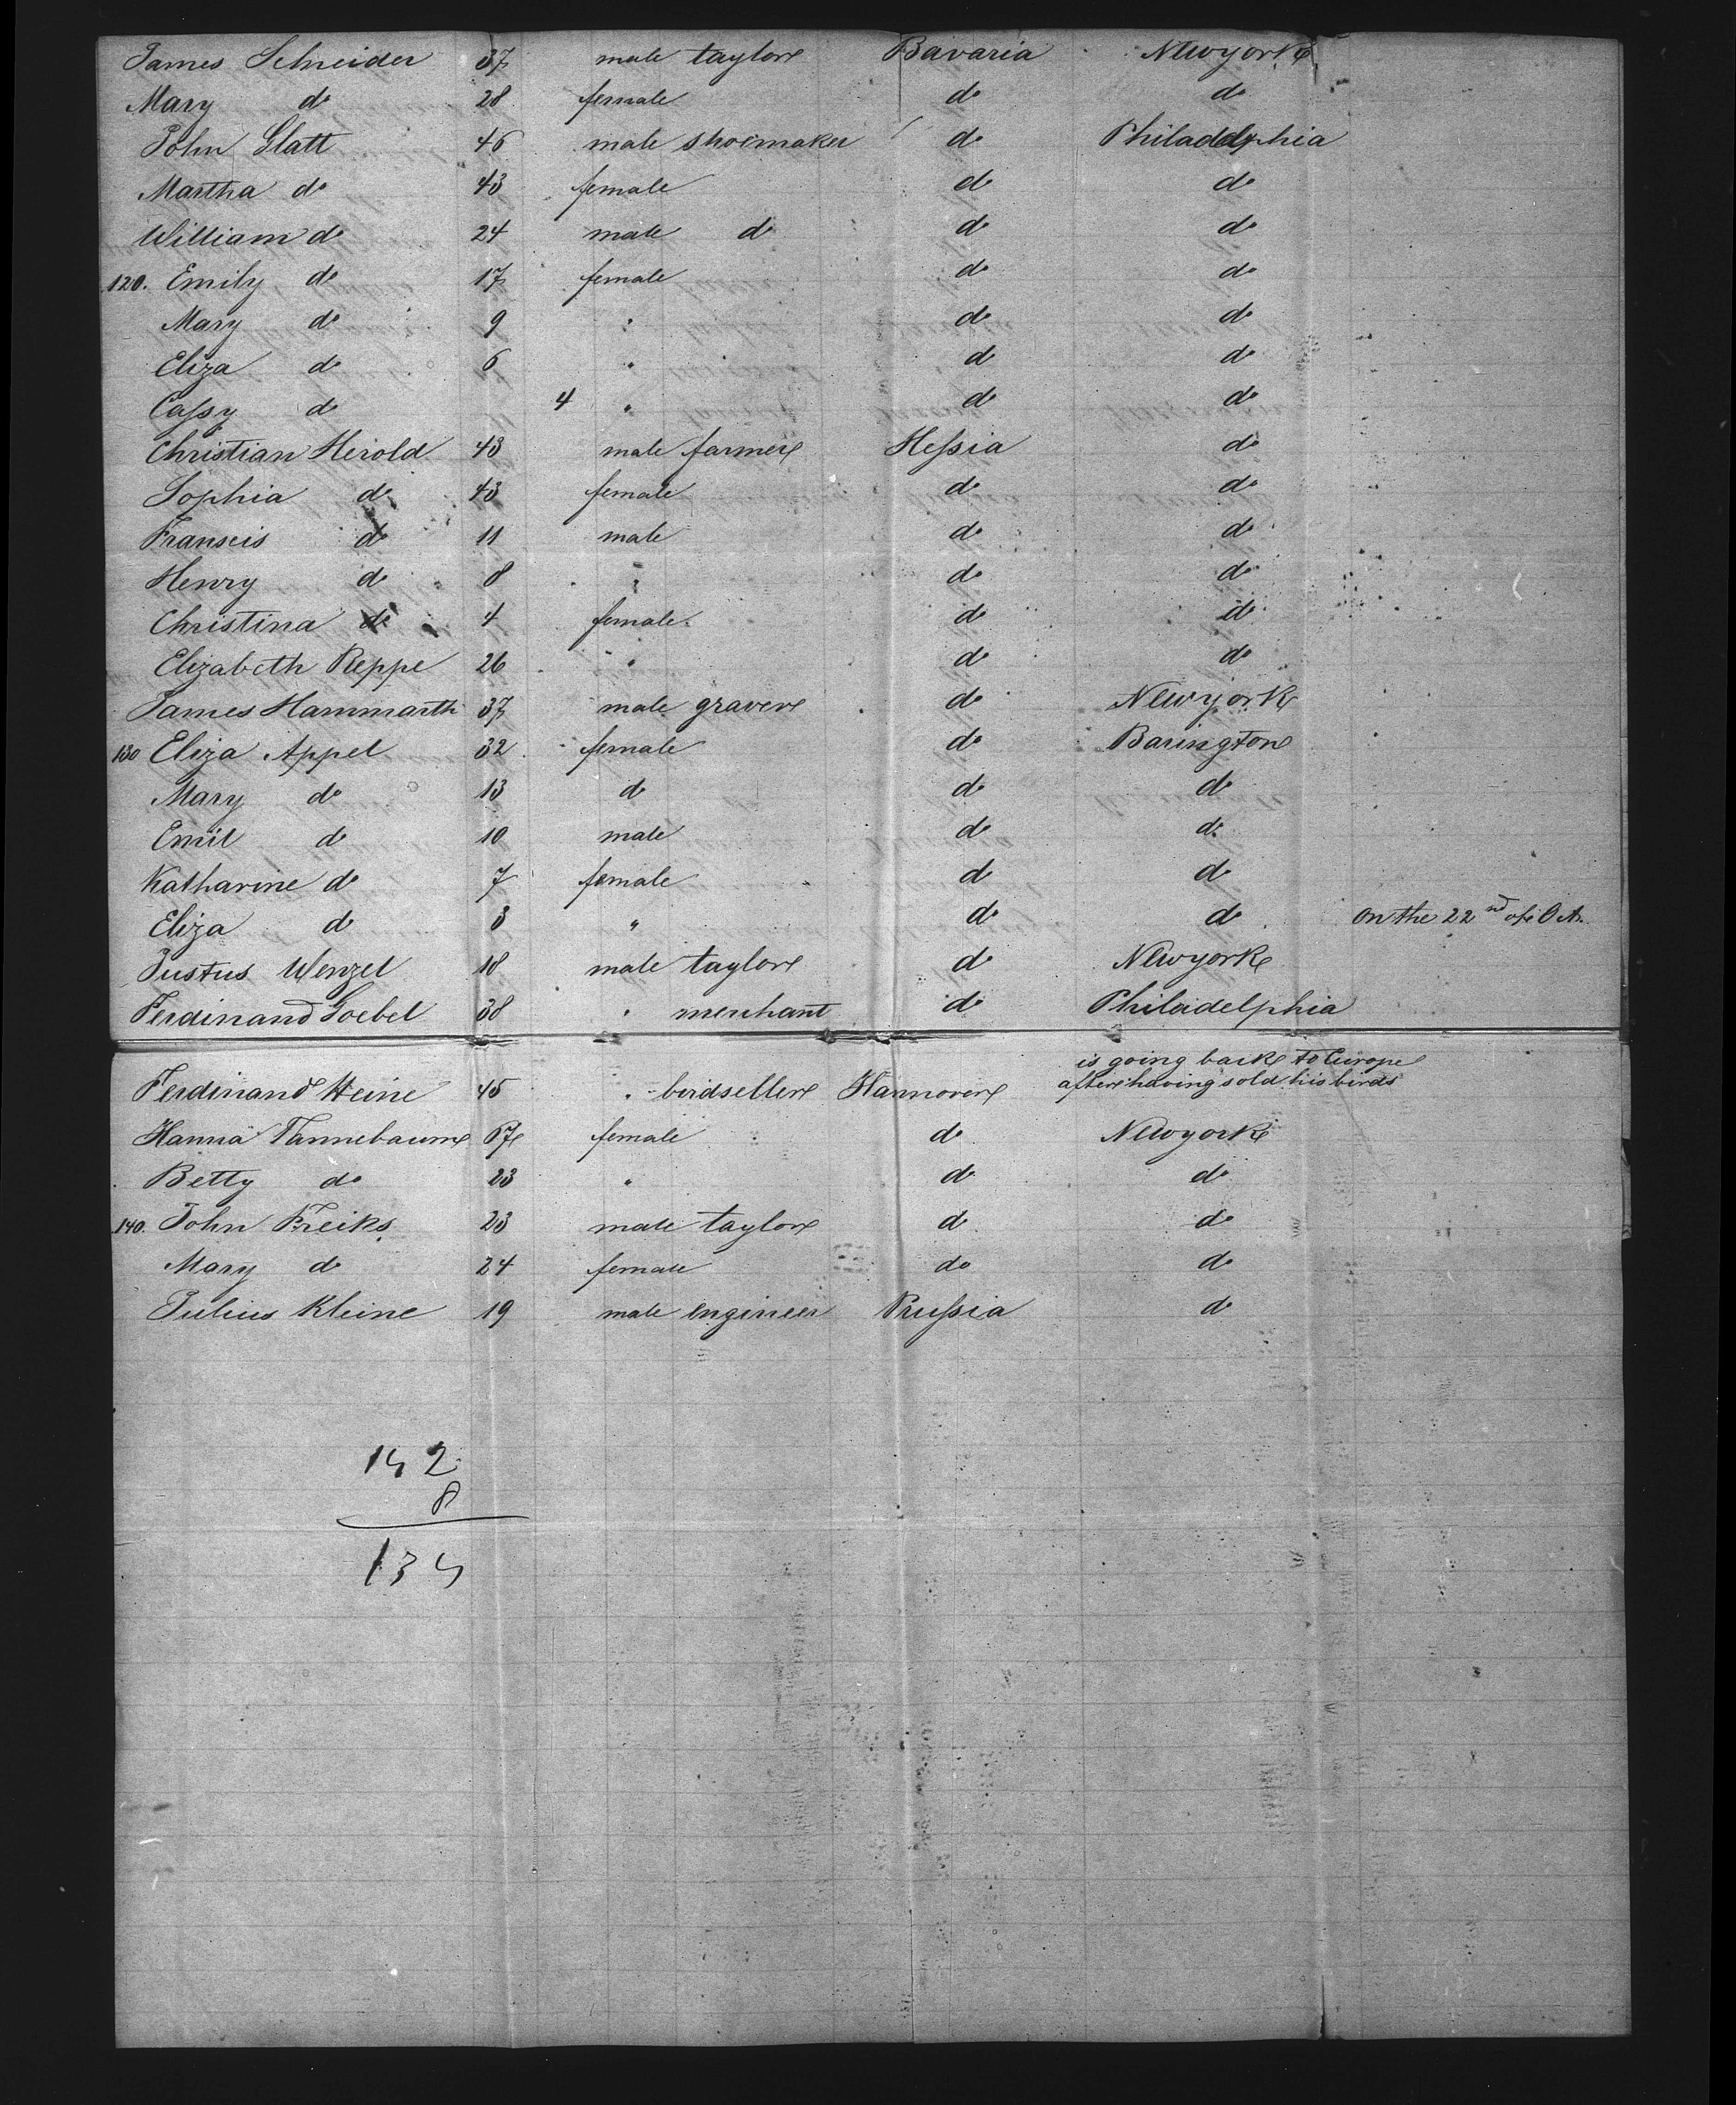 James Schneider 37 male taylor Bavaria Newyork
Mary do 28 female do do
John Glatt 46 male shoemaker do Philadelphia
Martha do 43 female do do
William do 24 male do do do
120. Emily do 17 female do do
Mary do 9 " do do
Eliza do 6 " do do
Cassy do 4 " do do
Christian Herold 43 male farmer Hessia do
Sophia do 43 female do do
Franscis do 11 male do do
Henry do 8 " do do
Christina do 4 female do do
Elizabeth Reppe 26 " do do
James Hammarth 37 male graver do Newyork
130 Eliza Appel 32 female do Barington
Mary do 13 do do do
Emil do 10 male do do
Katharine do 7 female do do
Eliza do 3 " do do on the 22nd of Oct.
Justus Wenzel 18 male taylor do Newyork
Ferdinand Goebel 38 " merchant do Philadelphia
is going back to Europe
Ferdinand Heine 45 " birdseller Hannover after having sold his birds
Hanna Tannebaum 67 female do Newyork
Betty do 23 " do do
140. John Freiks 23 male taylor do do
Mary do 24 female do do
Julius Kleine 19 male engineer Prussia do
142
8
134